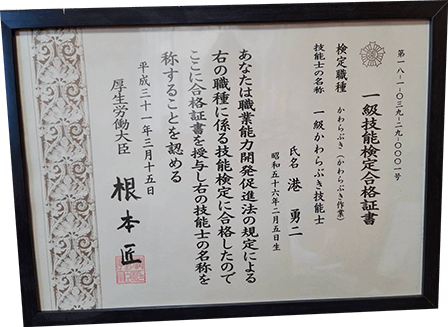 第一八-一-〇三九-一九-〇〇〇一号
一級技能検定合格証書
検定職種　かわらぶき（かわらぶき作業）
技能士の名称　一級かわらぶき技能士
氏名 港 勇二
昭和五十六年二月五日生
あなたは職業能力開発促進法の規定による
右の職種に係る技能検定に合格したので
ここに合格証書を授与し右の技能士の名称を
称することを認める
平成三十一年三月十五日
厚生労働大臣 根本匠